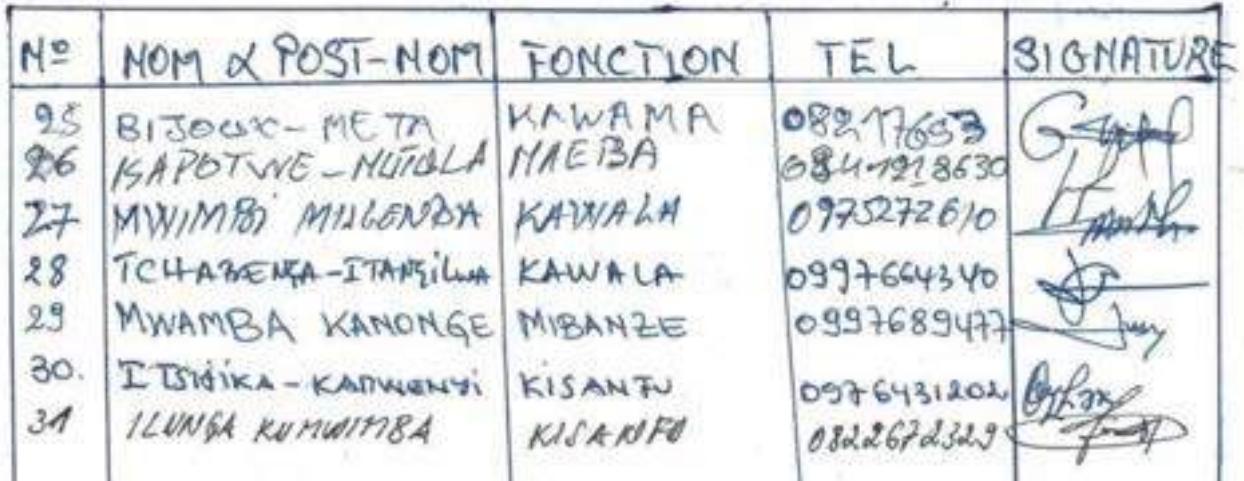 Nº NOM & POST-NOM FONCTION TEL SIGNATURE
25 BIJOUX-META KAWAMA 08217653
26 KAPOTWE-MUTOLA MAEBA 0841218630
27 MWIMBI MULENDA KAWALA 0975272610
28 TCHABENGA-ITANGILWA KAWALA 0997664340
29 MWAMBA KANONGE MIBANZE 0997689477
30. ITSHIKA-KAMWENYI KISANFU 0976431202
31 ILUNGA KUMWIMBA KISANFU 0822672329